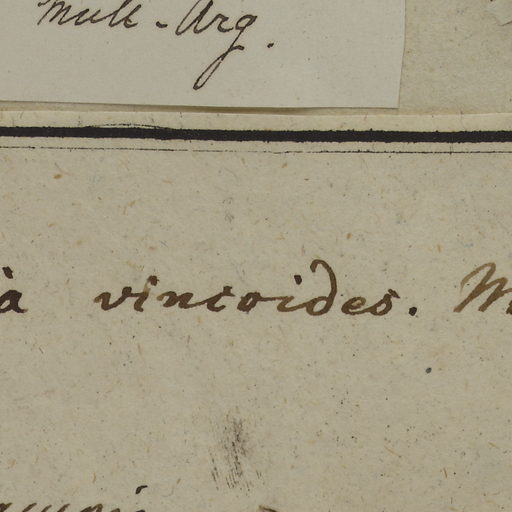 Mull-Arg.
à vincoides. M